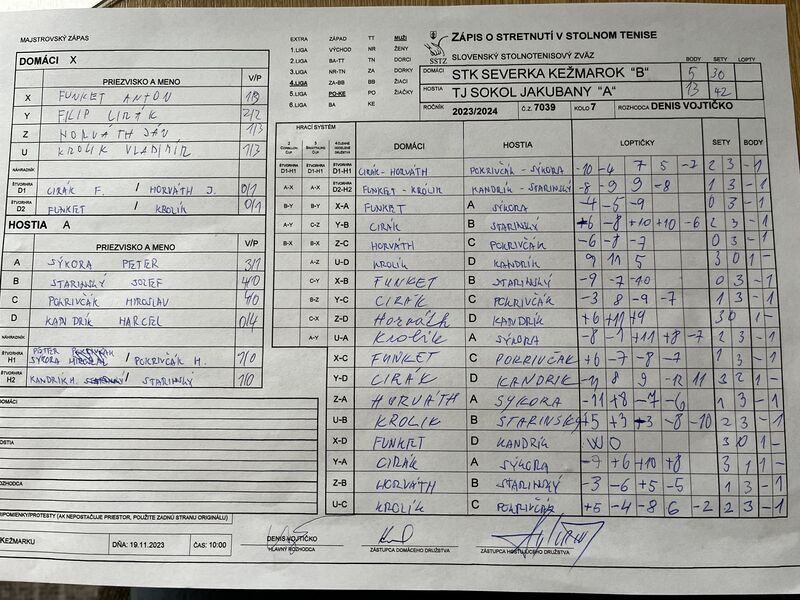 MAJSTROVSKÝ ZÁPAS
DOMÁCI X
PRIEZVISKO A MENO V/P
X FUNKET ANTON 1/3
Y FILIP CIRÁK 2/2
Z HORVÁTH JÁN 1/3
U KROLIK VLADIMÍR 1/3
NÁHRADNÍK
ŠTVORHRA D1 CIRÁK F. / HORVÁTH J. 0/1
ŠTVORHRA D2 FUNKET / KROLIK 0/1
HOSTIA A
PRIEZVISKO A MENO V/P
A SÝKORA PETER 3/1
B STARINSKÝ JOZEF 4/0
C POKRIVČÁK MIROSLAV 4/0
D KANDRÍK MARCEL 0/4
NÁHRADNÍK
ŠTVORHRA H1 SÝKORA / POKRIVČÁK M. 1/0
ŠTVORHRA H2 KANDRIK M. / STARINSKÝ 1/0
DOMÁCI
HOSTIA
ROZHODCA
PRIPOMIENKY/PROTESTY (AK NEPOSTAČUJE PRIESTOR, POUŽITE ZADNÚ STRANU ORIGINÁLU)
KEŽMARKU DŇA: 19.11.2023 ČAS: 10:00
EXTRA ZÁPAD TT MUŽI
1.LIGA VÝCHOD NR ŽENY
2.LIGA BA-TT TN DORCI
3.LIGA NR-TN ZA DORKY
4.LIGA ZA-BB BB ŽIACI
5.LIGA PO-KE PO ŽIAČKY
6.LIGA BA KE
SSTZ
ZÁPIS O STRETNUTÍ V STOLNOM TENISE
SLOVENSKÝ STOLNOTENISOVÝ ZVÄZ
BODY SETY LOPTY
DOMÁCI STK SEVERKA KEŽMAROK "B" 5 30
HOSTIA TJ SOKOL JAKUBANY "A" 13 42
ROČNÍK 2023/2024 Č.Z. 7039 KOLO 7 ROZHODCA DENIS VOJTIČKO
HRACÍ SYSTÉM
DOMÁCI HOSTIA LOPTIČKY SETY BODY
ŠTVORHRA D1-H1 ŠTVORHRA D1-H1 ŠTVORHRA D1-H1 CIRÁK-HORVÁTH POKRIVČAK-SÝKORA -10 -4 7 5 -7 2 3 -1
A-X A-X ŠTVORHRA D2-H2 FUNKET-KROLIK KANDRIK-STARINSKÝ -8 -9 9 -8 1 3 -1
B-Y B-Y X-A FUNKET A SÝKORA -4 -5 -9 0 3 -1
A-Y C-Z Y-B CIRÁK B STARINSKÝ +6 -8 +10 +10 -6 2 3 -1
B-X B-X Z-C HORVÁTH C POKRIVČÁK -6 -8 -7 0 3 -1
A-Z U-D KROLIK D KANDRIK 9 11 5 3 0 1-
C-Y X-B FUNKET B STARINSKÝ -9 -7 -10 0 3 -1
B-Z Y-C CIRÁK C POKRIVČÁK -3 8 -9 -7 1 3 -1
C-X Z-D Horváth D KANDRIK +6 +11 +9 3 0 1-
A-Y U-A Krolik A SÝKORA -8 -1 +11 +8 -7 2 3 -1
X-C FUNKET C POKRIVČAK +6 -7 -8 -7 1 3 -1
Y-D CIRÁK D KANDRIK -11 8 9 -12 11 3 2 1-
Z-A HORVÁTH A SYKORA -11 +8 -7 -6 1 3 -1
U-B KROLIK B STARINSKÝ +5 +3 -3 -8 -10 2 3 -1
X-D FUNKET D KANDRIK WO 3 0 1-
Y-A CIRÁK A SÝKORA -7 +6 +10 +8 3 1 1-
Z-B HORVÁTH B STARINSKÝ -3 -6 +5 -5 1 3 -1
U-C KROLIK C POKRIVČÁK +5 -4 -8 6 -2 2 3 -1
DENIS VOJTIČKO
HLAVNÝ ROZHODCA
ZÁSTUPCA DOMÁCEHO DRUŽSTVA
ZÁSTUPCA HOSŤUJÚCEHO DRUŽSTVA